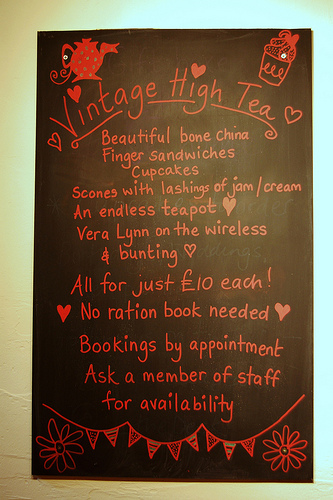 Vintage High Tea
Beautiful bone China
Finger sandwiches
Cupcakes
Scones with lashings of jam/cream
An endless teapot
Vera Lynn on the wireless
& bunting
All for just £10 each!
No ration book needed
Bookings by appointment
Ask a member of staff
for availability